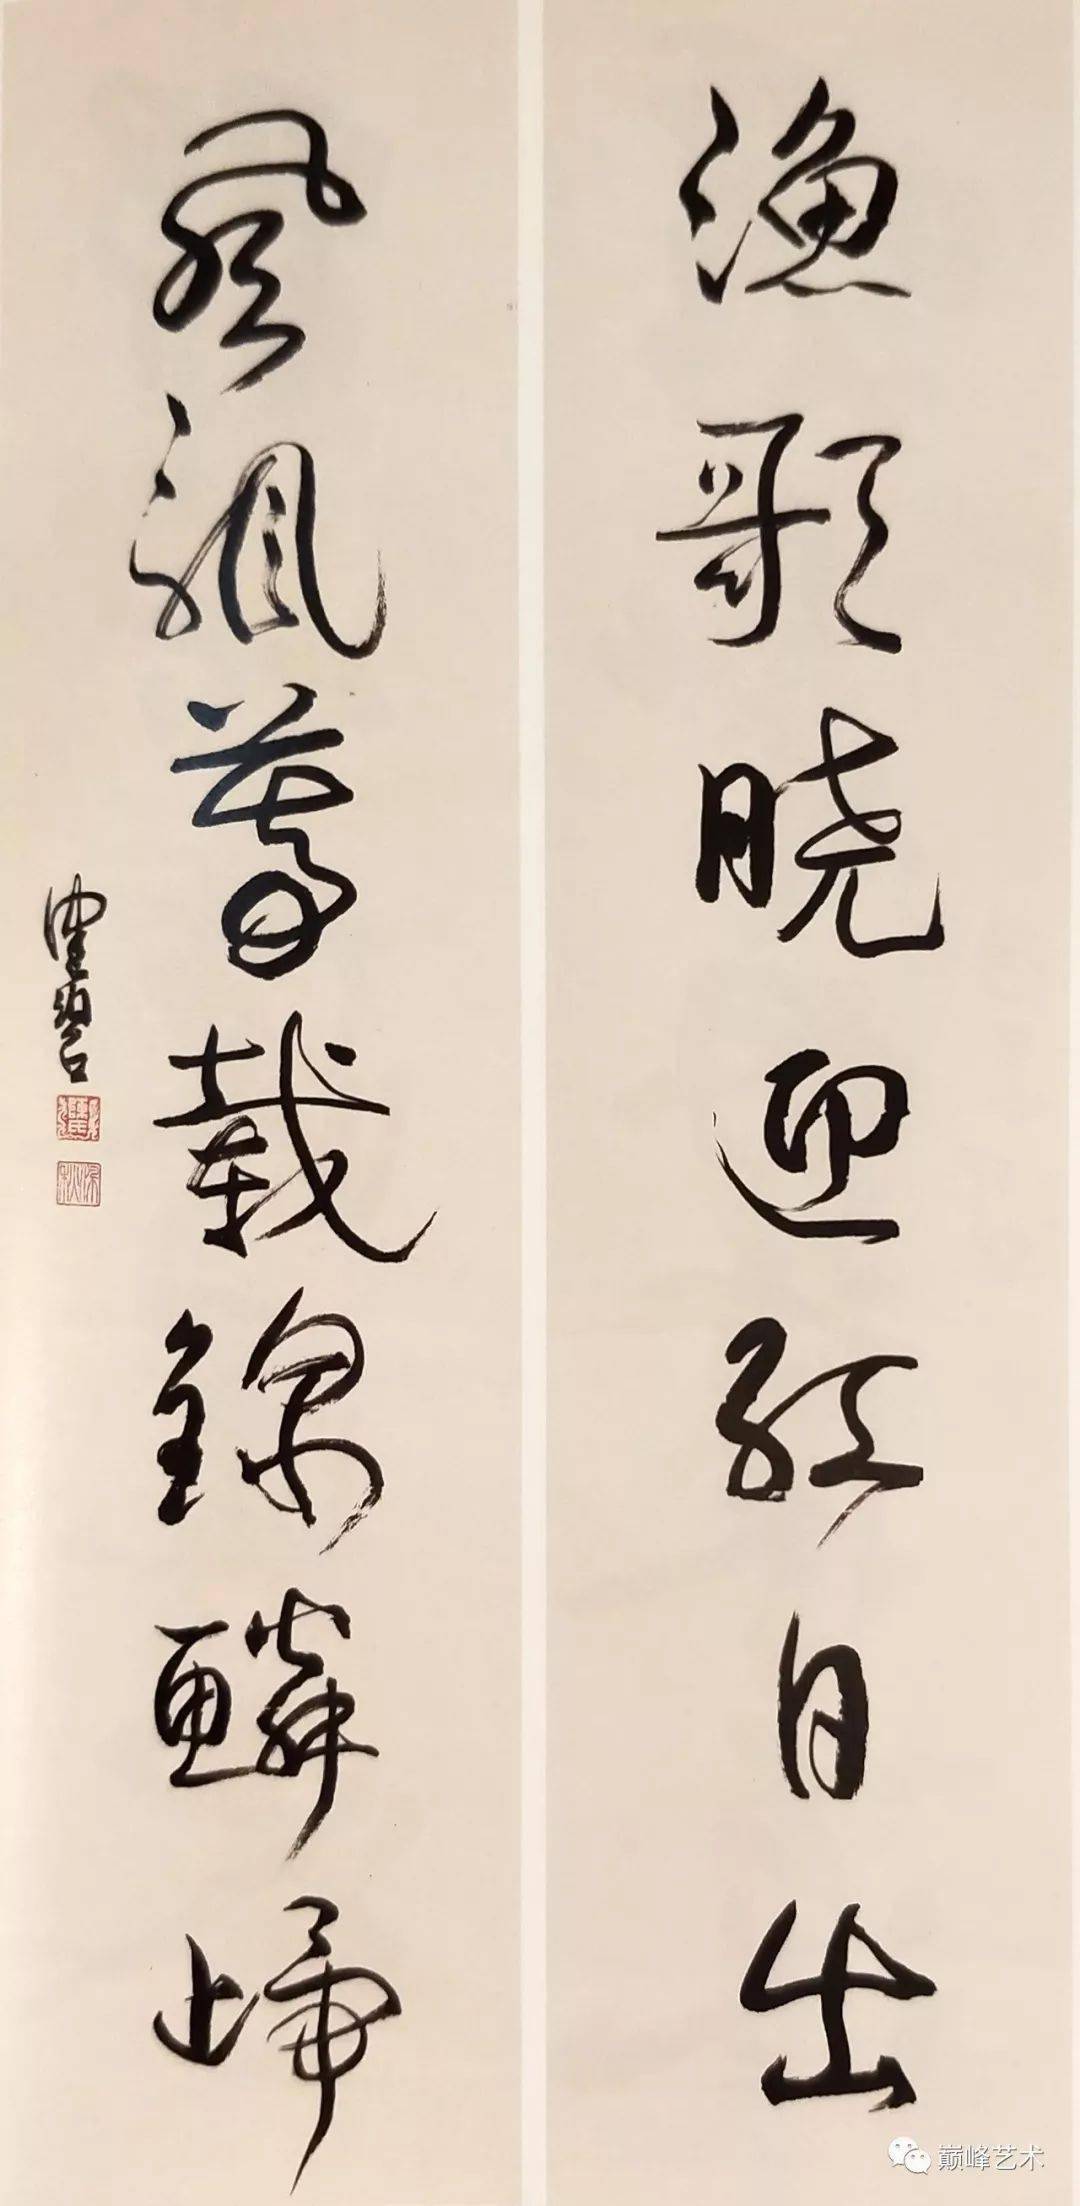 渔歌晓迎红日出
风帆暮载锦鳞归
巅峰艺术